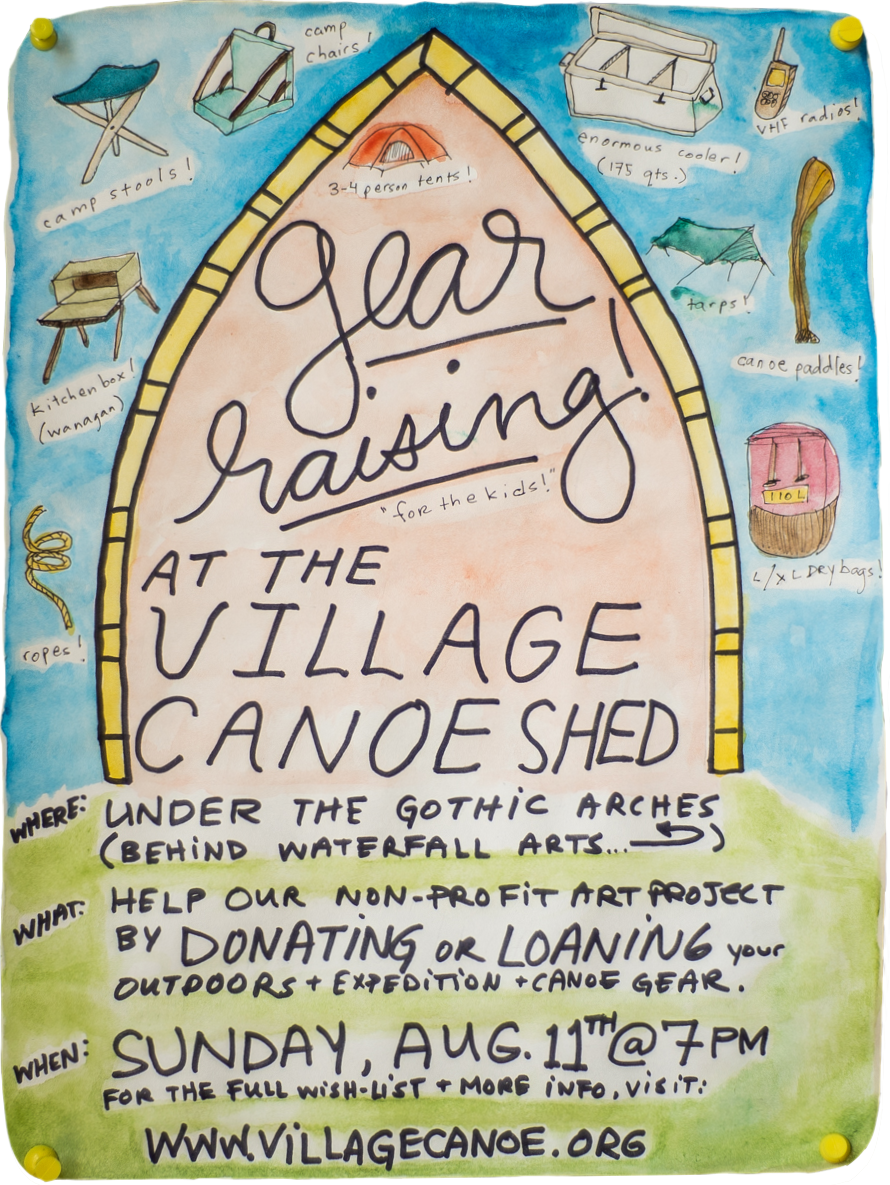 camp chairs!
camp stools!
enormous cooler!
(175 qts.)
VHF radios!
3-4 person tents!
tarps!
canoe paddles!
kitchen box!
(wanagan)
ropes!
110 L
L/XL DRY bags!
gear
raising!
"for the kids!"
AT THE
VILLAGE
CANOE SHED
WHERE: UNDER THE GOTHIC ARCHES
(BEHIND WATERFALL ARTS...)
WHAT: HELP OUR NON-PROFIT ART PROJECT
BY DONATING OR LOANING your
OUTDOORS + EXPEDITION + CANOE GEAR.
WHEN: SUNDAY, AUG. 11TH @ 7PM
FOR THE FULL WISH-LIST + MORE INFO, VISIT:
WWW.VILLAGECANOE.ORG